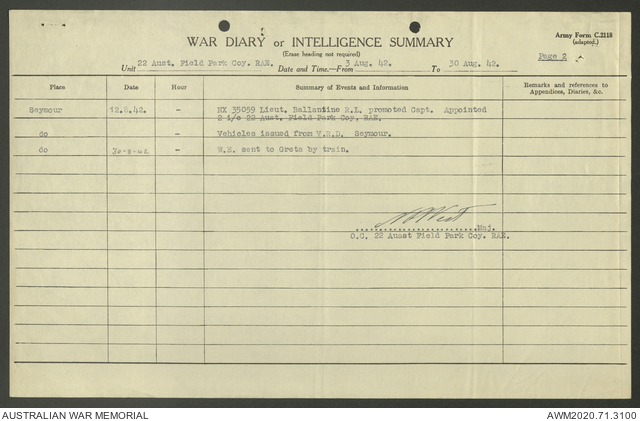 Army Form C.2118
(adapted.)
WAR DIARY or INTELLIGENCE SUMMARY
(Erase heading not required)
Page 2
Unit 22 Aust. Field Park Coy. RAE. Date and Time.—From 3 Aug. 42. To 30 Aug. 42.
Place Date Hour Summary of Events and Information Remarks and references to Appendices, Diaries, &c.
Seymour 12.8.42. - NX 35059 Lieut. Ballantine R.L. promoted Capt. Appointed
2 i/c 22 Aust. Field Park Coy. RAE.
do - Vehicles issued from V.R.D. Seymour.
do 30-8-42 - W.E. sent to Greta by train.
West Maj.
O.C. 22 Auast Field Park Coy. RAE.
AUSTRALIAN WAR MEMORIAL
AWM2020.71.3100